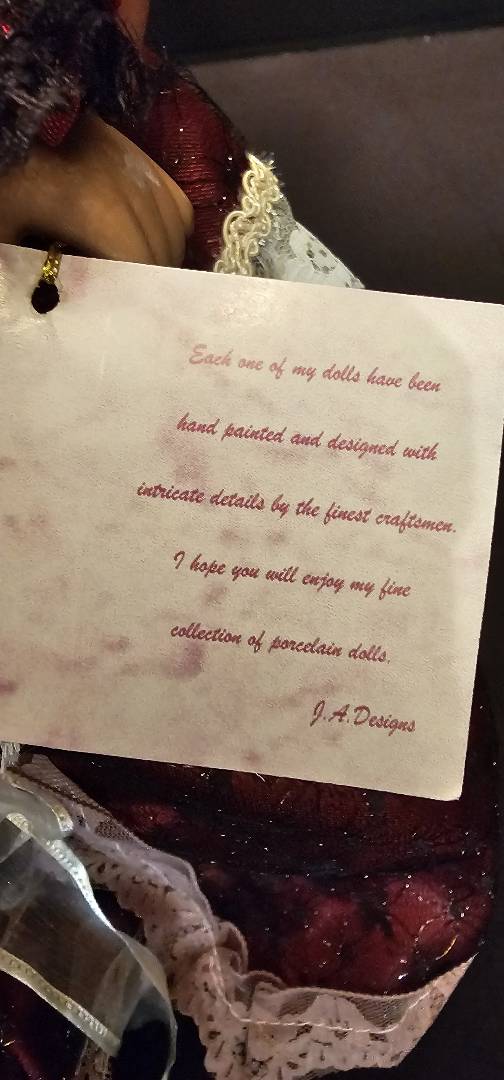 Each one of my dolls have been
hand painted and designed with
intricate details by the finest craftsmen.
I hope you will enjoy my fine
collection of porcelain dolls.
J.A.Designs